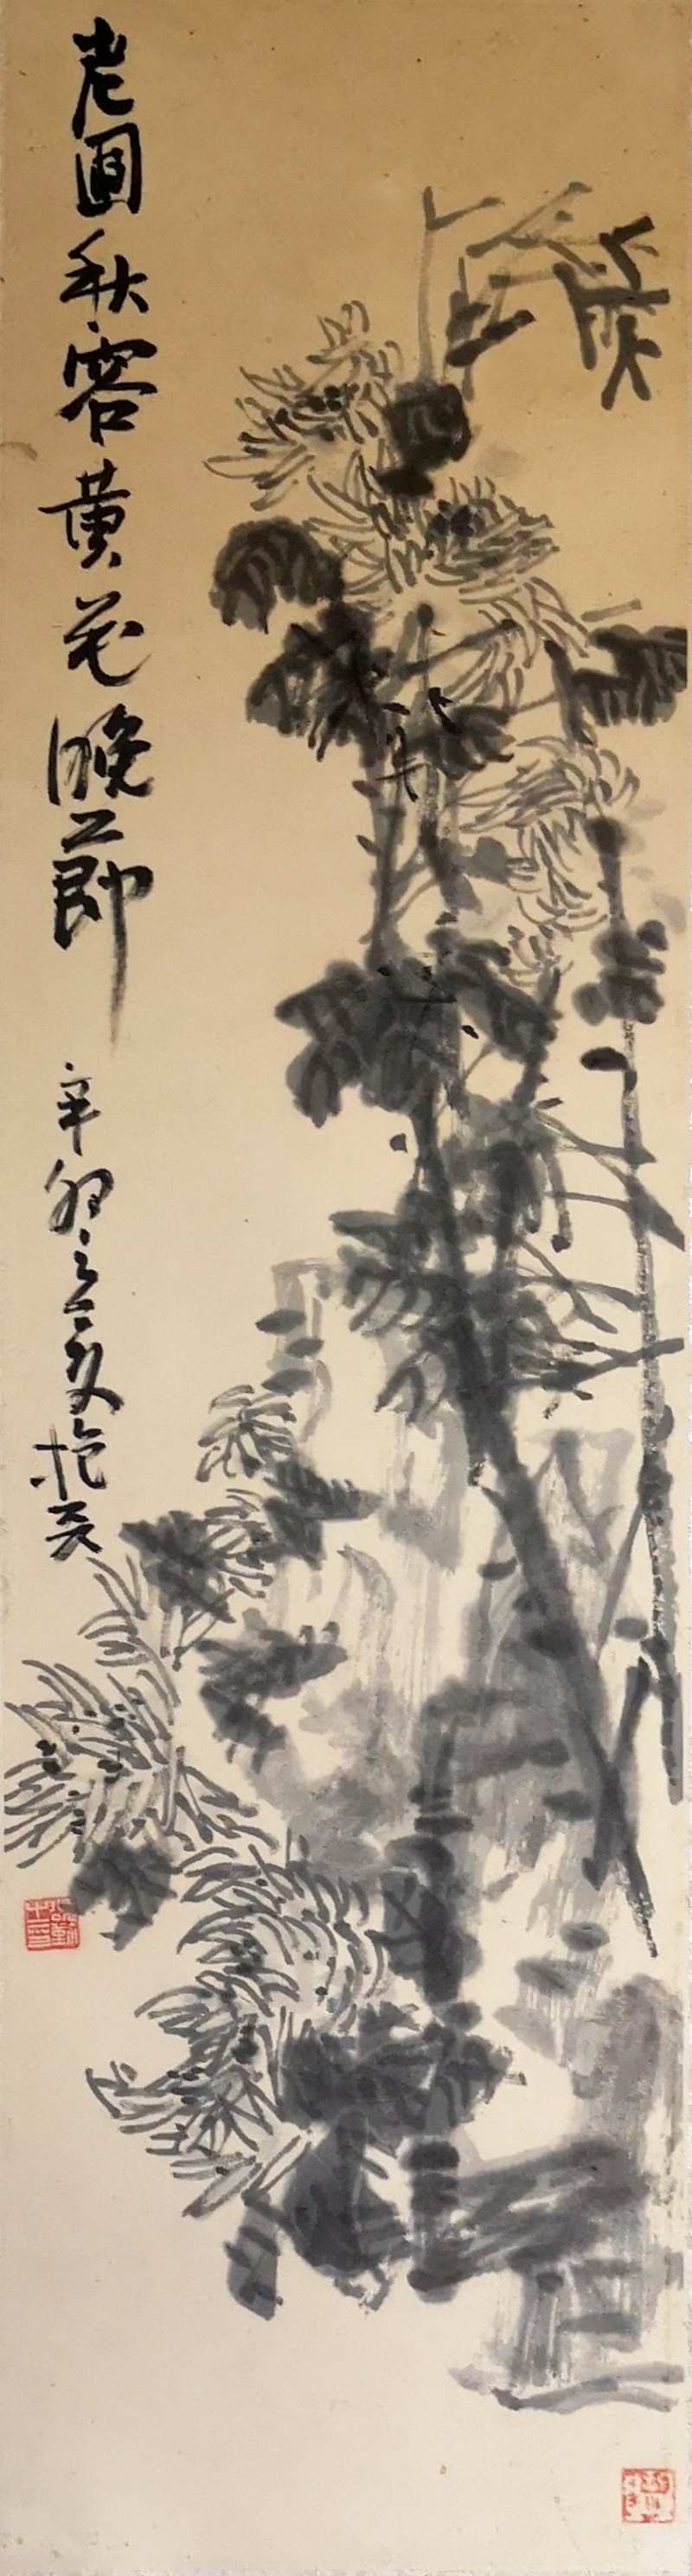 老圃秋容黄花晚節
辛卯之夏